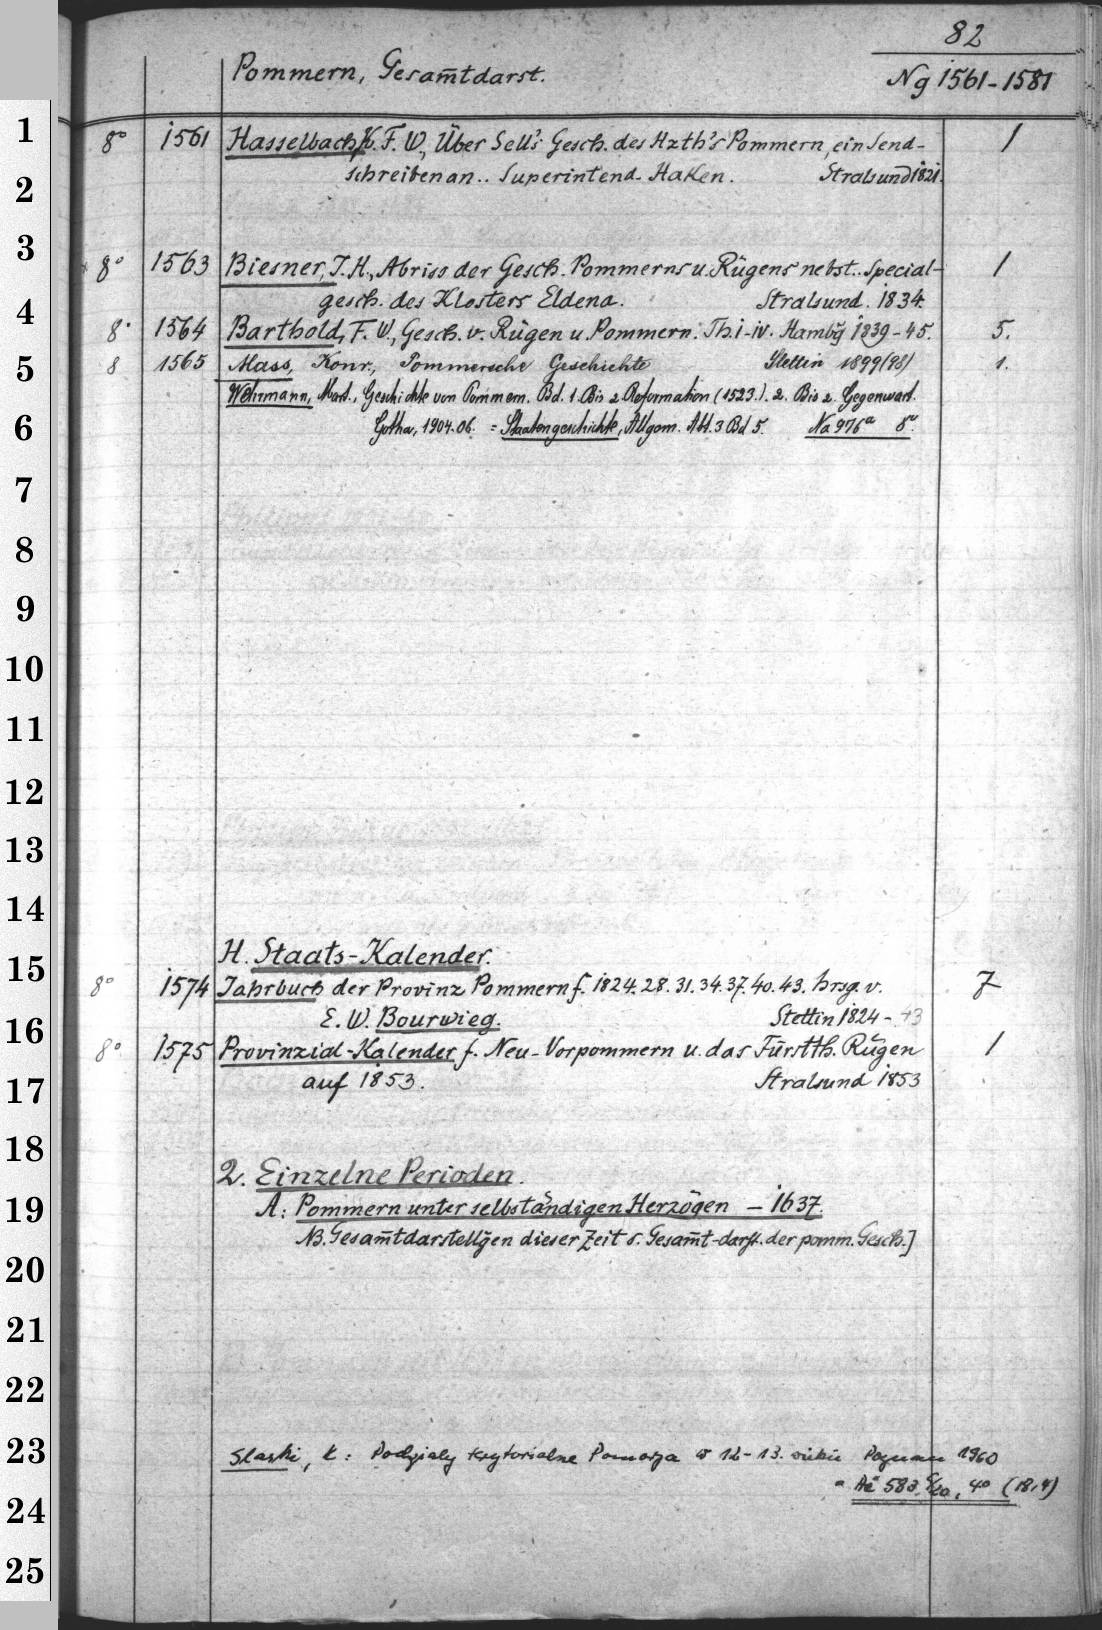 82
Pommern, Gesam̄tdarst.
Ng 1561-1581
1
8° 1561 Hasselbach, K. F. W., Über Sell's Gesch. des Hzth's Pommern, ein Send- 1
2
schreiben an.. Superintend. Haken. Stralsund 1821.
3
8° 1563 Biesner, J. H., Abriss der Gesch. Pommerns u. Rügens nebst.. Special- 1
4
gesch. des Klosters Eldena. Stralsund. 1834.
8° 1564 Barthold, F. W., Gesch. v. Rügen u Pommern. Th. I-IV. Hambg 1839-45. 5.
5
8 1565 Mass, Konr., Pommersche Geschichte Stettin 1899(98) 1.
Wehrmann, Mart., Geschichte von Pommern. Bd. 1. Bis z Reformation (1523.). 2. Bis z. Gegenwart.
6
Gotha, 1904.06. = Staatengeschichte, Allgem. Abt. 3 Bd 5. Na 976ª 8°.
7
8
9
10
11
12
13
14
H. Staats-Kalender.
15
8° 1574 Jahrbuch der Provinz Pommern f. 1824. 28. 31. 34. 37. 40. 43. hrsg. v. 7
16
E. W. Bourwieg. Stettin 1824-43
8° 1575 Provinzial-Kalender f. Neu-Vorpommern u. das Fürstth. Rügen 1
17
auf 1853. Stralsund 1853
18
2. Einzelne Perioden.
19
A: Pommern unter selbständigen Herzögen - 1637.
NB. Gesam̄tdarstellgen dieser Zeit s. Gesam̄t-darst. der pomm. Gesch.]
20
21
22
23
Slaski, K: Podzialy terytorialne Pomorza w 12-13. wieku Poznan 1960
24
583 4° (18,4)
25